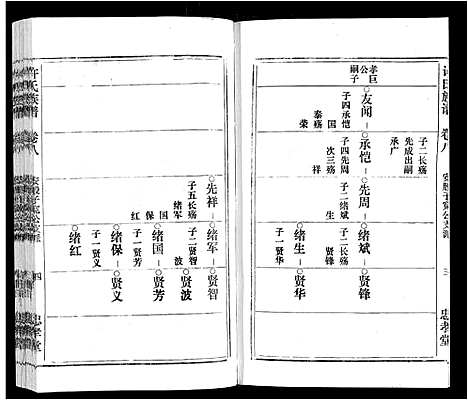 许氏族谱 卷八
三
忠孝堂
子二长殇
先成出嗣
承广
孝巨
公
嗣子
友闻
子四承恺
国
泰殇
荣
承恺
子四先周
次三殇
祥
先周
子二绪斌
生
绪斌
子二长殇
贤锋
绪生
子一
贤华
贤锋
贤华
许氏族谱 卷八
四
忠孝堂
先祥
子五长殇
绪军
国
保
红
绪军
子二贤智
波
绪国
子一贤芳
绪保
子一贤义
绪红
贤智
贤波
贤芳
贤义